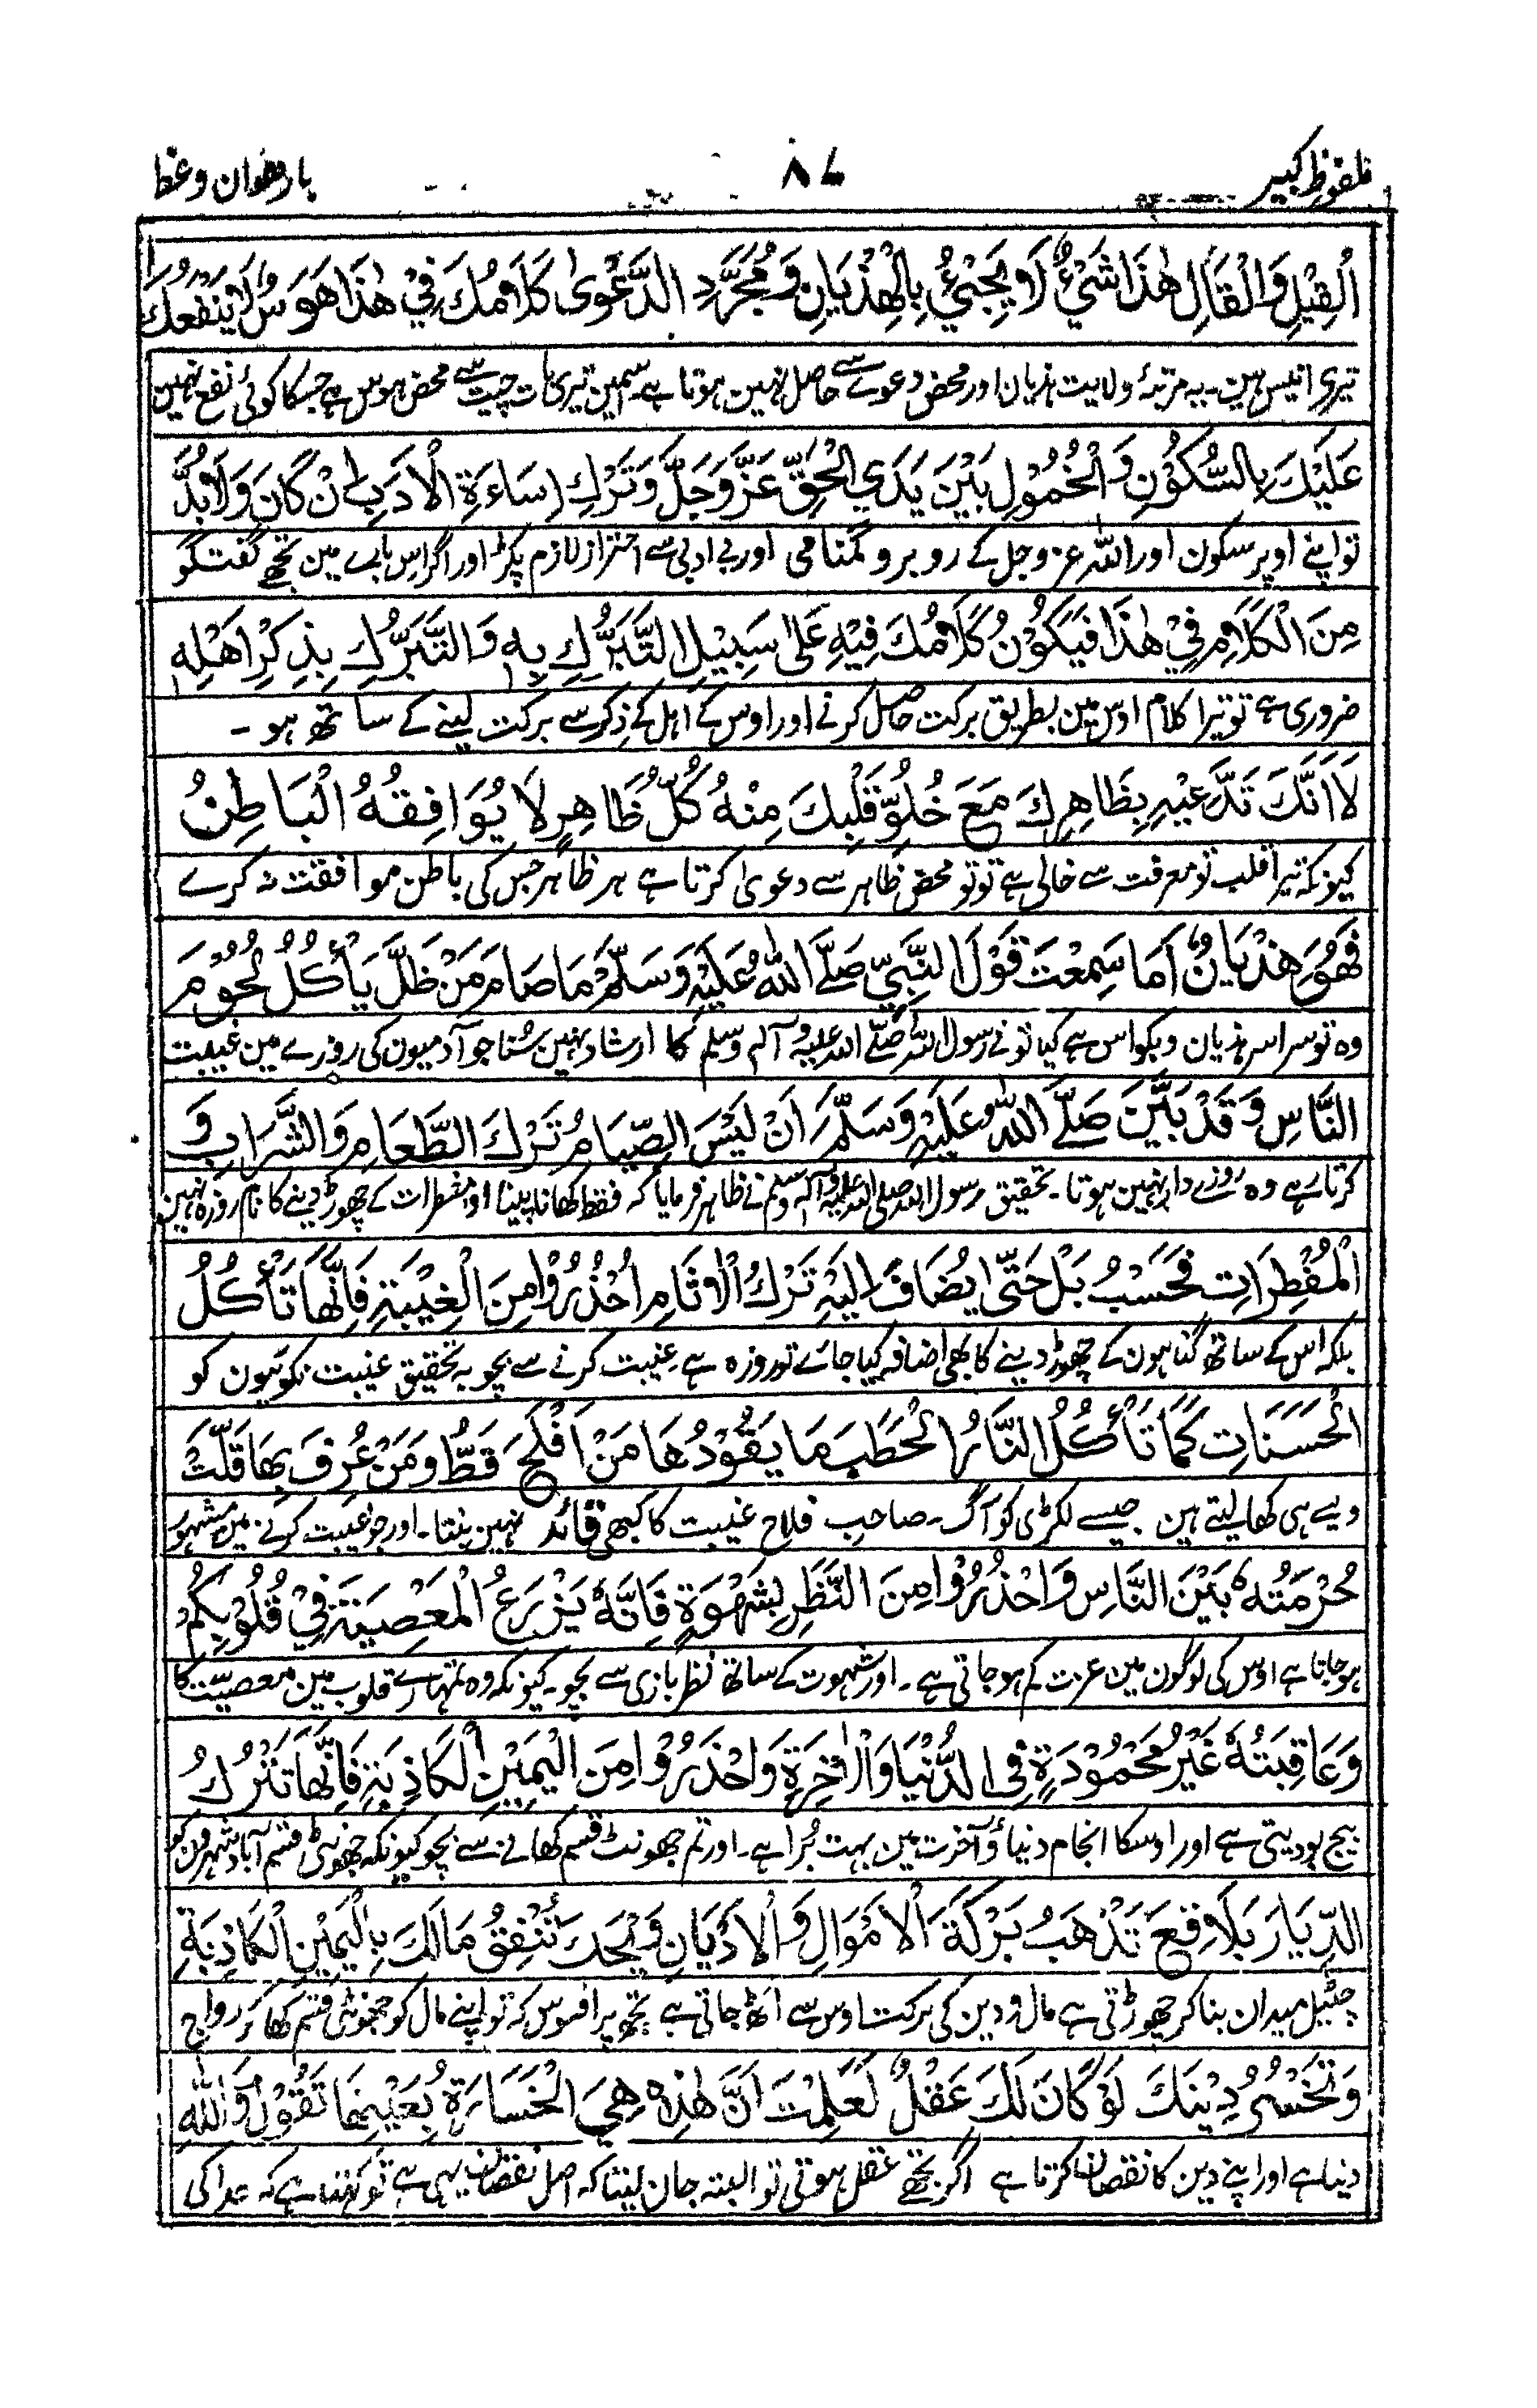 ملفوظ کبیر
۸۷
بارھوان وعظ
الْقِیْلِ وَالْقَالِ هٰذَا شَیْءٌ لَا یَجِیْئُ بِالْهَذْیَانِ وَ مُجَرَّدِ الدَّعْوٰی کَلَامُكَ فِیْ هٰذَا هَوَسٌ لَا یَنْفَعُكَ
تیری انیس ہین۔ یہ مرتبۂ ولایت ہذیان اور محض دعوے سے حاصل نہین ہوتا ہے۔ سمین تیری بات چیت سے محض ہوس ہے جسکا کوئی نفع نہین
عَلَیْكَ بِالسُّکُوْنِ وَ الْخُمُوْلِ بَیْنَ یَدَیِ الْحَقِّ عَزَّ وَجَلَّ وَ تَرْكِ اِسَاءَةِ الْاَدَبِ اِنْ کَانَ وَ لَا بُدَّ
تو اپنے اوپر سکون اور اللہ عز وجل کے روبرو گمنامی اور بے ادبی سے احتراز لازم پکڑ اور اگر اس بارے مین تجھے گفتگو
مِنَ الْکَلَامِ فِیْ هٰذَا فَیَکُوْنُ کَلَامُكَ فِیْهِ عَلٰی سَبِیْلِ التَّبَرُّكِ بِهٖ وَ التَّبَرُّكِ بِذِکْرِ اَهْلِهٖ
ضروری ہے تو تیرا کلام اوس مین بطریق برکت حاصل کرنے اور اوس کے اہل کے ذکر سے برکت لینے کے ساتھ ہو ۔
لَا اَنَّكَ تَدَّعِیْهِ بِظَاهِرِكَ مَعَ خُلُوِّ قَلْبِكَ مِنْهُ کُلُّ ظَاهِرٍ لَا یُوَافِقُهُ الْبَاطِنُ
کیونکہ تیرا قلب تو معرفت سے خالی ہے تو تو محض ظاہر سے دعویٰ کرتا ہے ہر ظاہر جس کی باطن موافقت نہ کرے
فَهُوَ هَذْیَانٌ اَمَا سَمِعْتَ قَوْلَ النَّبِیِّ صَلَّے اللّٰهُ عَلَیْهِ وَ سَلَّمْ مَا صَامَ مَنْ ظَلَّ یَاْکُلُ لُحُوْمَ
وہ تو سراسر ہذیان و بکواس ہے کیا تو نے رسول اللہ صلے اللہ علیہ و آلہ وسلم کا ارشاد نہین سُنا جو آدمیون کی روزے مین غیبت
النَّاسِ وَ قَدْ بَیَّنَ صَلَّے اللّٰهُ عَلَیْهِ وَ سَلَّمَ اَنْ لَیْسَ الصِّیَامُ تَرْكَ الطَّعَامِ وَ الشَّرَابِ وَ
کرتا رہے وہ روزے دار نہین ہوتا۔ تحقیق رسول اللہ صلی اللہ علیہ وآلہ وسلم نے ظاہر فرمایا کہ فقط کھانا پینا اور مفطرات کے چھوڑ دینے کا نام روزہ نہین
الْمُفْطِرَاتِ فَحَسْبُ بَلْ حَتّٰی یُضَافَ اِلَیْهِ تَرْكُ الْاٰثَامِ اُحْذُرُوْا مِنَ الْغِیْبَةِ فَاِنَّهَا تَاْکُلُ
بلکہ اس کے ساتھ گناہون کے چھوڑ دینے کا بھی اضافہ کیا جائے تو روزہ ہے غیبت کرنے سے بچو بہ تحقیق غیبت نکوئیون کو
الْحَسَنَاتِ کَمَا تَاْکُلُ النَّارُ الْحَطَبَ مَا یَقُوْدُهَا مَنْ اَفْلَحَ قَطُّ وَ مَنْ عُرِفَ بِهَا قَلَّتْ
ویسے ہی کھا لیتے ہین جیسے لکڑی کو آگ ۔ صاحب فلاح غیبت کا کبھی قائد نہین بنتا۔ اور جو غیبت کرنے مین مشہور
حُرْمَتُهٗ بَیْنَ النَّاسِ وَ احْذَرُوْا مِنَ النَّظَرِ بِشَهْوَةٍ فَاِنَّهٗ یَزْرَعُ الْمَعْصِیَةَ فِیْ قُلُوْبِکُمْ
ہو جاتا ہے اوس کی لوگون مین عزت کم ہو جاتی ہے ۔ اور شہوت کے ساتھ نظر بازی سے بچو۔ کیونکہ وہ تمہارے قلوب مین معصیت کا
وَ عَاقِبَتُهٗ غَیْرُ مَحْمُوْدَةٍ فِی الدُّنْیَا وَ الْاٰخِرَةِ وَ احْذَرُوْا مِنَ الْیَمِیْنِ الْکَاذِبَةِ فَاِنَّهَا تَتْرُكُ
بیج بو دیتی ہے اور اوسکا انجام دنیا و آخرت مین بہت بُرا ہے۔ اور تم جھونٹ قسم کھانے سے بچو کیونکہ جھونٹی قسم آباد شہرون کو
الدِّیَارَ بَلَاقِعَ تَذْهَبُ بَرْکَةَ الْاَمْوَالِ وَ الْاَدْیَانِ وَیْحَكَ تُنْفِقُ مَالَكَ بِالْیَمِیْنِ الْکَاذِبَةِ
چٹیل میدان بنا کر چھوڑتی ہے مال و دین کی برکت اوس سے اٹھ جاتی ہے تجھ پر افسوس کہ تو اپنے مال کو جھونٹی قسم کھا کر رواج
وَ تَخْسُرُ دِیْنَكَ لَوْ کَانَ لَكَ عَقْلٌ لَعَلِمْتَ اَنَّ هٰذِهٖ هِیَ الْخَسَارَةُ بِعَیْنِهَا تَقُوْلُ وَ اللّٰهِ
دیتا ہے اور اپنے دین کا نقصان کرتا ہے اگر تجھے عقل ہوتی تو البتہ جان لیتا کہ اصل نقصان یہی ہے تو کہتا ہے کہ خدا کی